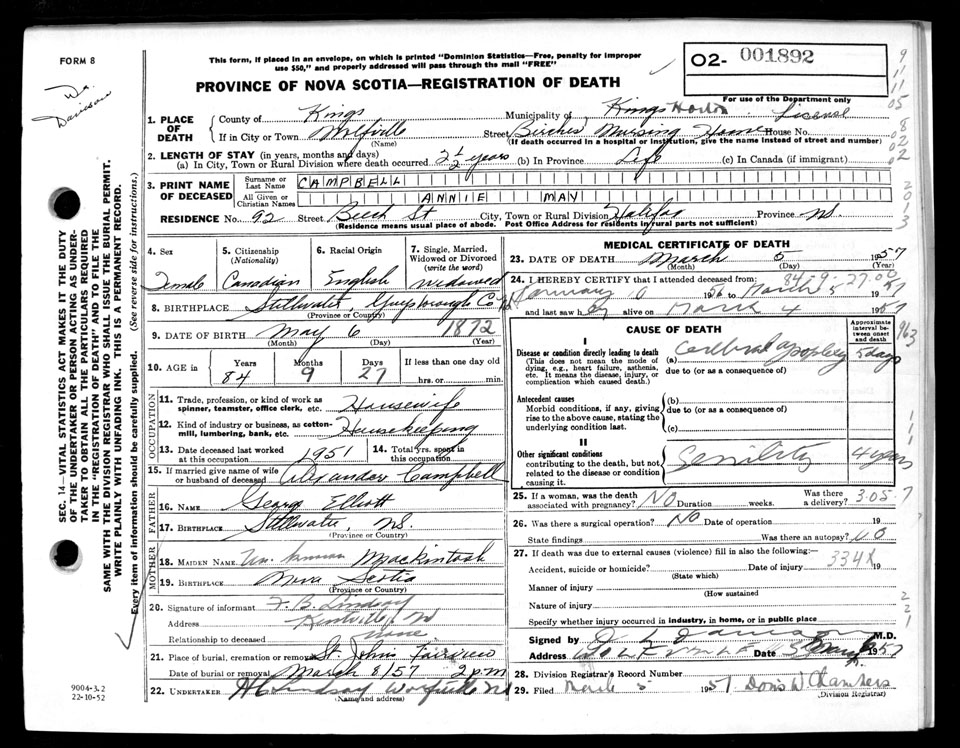 FORM 8
This form, if placed in an envelope, on which is printed "Dominion Statistics—Free, penalty for improper
use $50," and properly addressed will pass through the mail "FREE"
02- 001892
PROVINCE OF NOVA SCOTIA—REGISTRATION OF DEATH
For use of the Department only
Dr.
Davison
1. PLACE OF DEATH
County of Kings Municipality of Kings License
If in City or Town Wolfville Street Birches Nursing Home House No.
(Name) (If death occurred in a hospital or institution, give the name instead of street and number)
2. LENGTH OF STAY (in years, months and days)
(a) In City, Town or Rural Division where death occurred 2 1/2 years (b) In Province Life (c) In Canada (if immigrant)
3. PRINT NAME OF DECEASED
Surname or Last Name CAMPBELL
All Given or Christian Names ANNIE MAY
RESIDENCE No. 92 Street Beech St City, Town or Rural Division Halifax Province NS.
(Residence means usual place of abode. Post Office Address for residents in rural parts not sufficient)
4. Sex 5. Citizenship (Nationality) 6. Racial Origin 7. Single, Married, Widowed or Divorced (write the word)
Female Canadian English Widowed
8. BIRTHPLACE Stillwater Guysborough Co NS
(Province or Country)
9. DATE OF BIRTH May 6 1872
(Month) (Day) (Year)
10. AGE in Years Months Days If less than one day old
84 9 27 hrs. or min.
OCCUPATION
11. Trade, profession, or kind of work as spinner, teamster, office clerk, etc. Housewife
12. Kind of industry or business, as cotton-mill, lumbering, bank, etc. Housekeeping
13. Date deceased last worked at this occupation 1951 14. Total yrs. spent in this occupation
15. If married give name of wife or husband of deceased Alexander Campbell
FATHER
16. NAME George Elliott
17. BIRTHPLACE Stillwater, NS.
(Province or Country)
MOTHER
18. MAIDEN NAME Unknown Mackintosh
19. BIRTHPLACE Nova Scotia
(Province or Country)
20. Signature of informant F. B. Lindsay
Address Kentville, NS
Relationship to deceased none
21. Place of burial, cremation or removal St. Johns Fairview
Date of burial or removal March 8/57 2 p.m
22. UNDERTAKER Lindsay NS
(Name and address)
MEDICAL CERTIFICATE OF DEATH
23. DATE OF DEATH March 5 1957
(Month) (Day) (Year)
24. I HEREBY CERTIFY that I attended deceased from: 84-9-27.00
January 10 1956 to March 5 1957
and last saw her alive on March 4 1957
CAUSE OF DEATH
Approximate interval between onset and death
I
Disease or condition directly leading to death
(This does not mean the mode of dying, e.g., heart failure, asthenia, etc. It means the disease, injury, or complication which caused death.)
(a) Cerebral apoplexy 5 days
due to (or as a consequence of)
Antecedent causes
Morbid conditions, if any, giving rise to the above cause, stating the underlying condition last.
(b)
due to (or as a consequence of)
(c)
II
Other significant conditions
contributing to the death, but not related to the disease or condition causing it.
Senility 4 years
25. If a woman, was the death associated with pregnancy? NO Duration weeks. Was there a delivery? 3.057
26. Was there a surgical operation? No Date of operation 19
State findings Was there an autopsy? NO
27. If death was due to external causes (violence) fill in also the following:—
Accident, suicide or homicide? Date of injury 334X 19
(State which)
Manner of injury
(How sustained
Nature of injury
Specify whether injury occurred in industry, in home, or in public place
Signed by M.D.
Address WOLFVILLE Date 5 March 1957
28. Division Registrar's Record Number
29. Filed March 5 1957 Doris W Chambers
(Division Registrar)
SEC. 14—VITAL STATISTICS ACT MAKES IT THE DUTY
OF THE UNDERTAKER OR PERSON ACTING AS UNDER-
TAKER TO OBTAIN ALL THE PARTICULARS REQUIRED
IN THE "REGISTRATION OF DEATH" AND TO FILE THE
SAME WITH THE DIVISION REGISTRAR WHO SHALL ISSUE THE BURIAL PERMIT.
WRITE PLAINLY WITH UNFADING INK. THIS IS A PERMANENT RECORD.
Every item of information should be carefully supplied. (See reverse side for instructions.)
9004-3.2
22-10-52